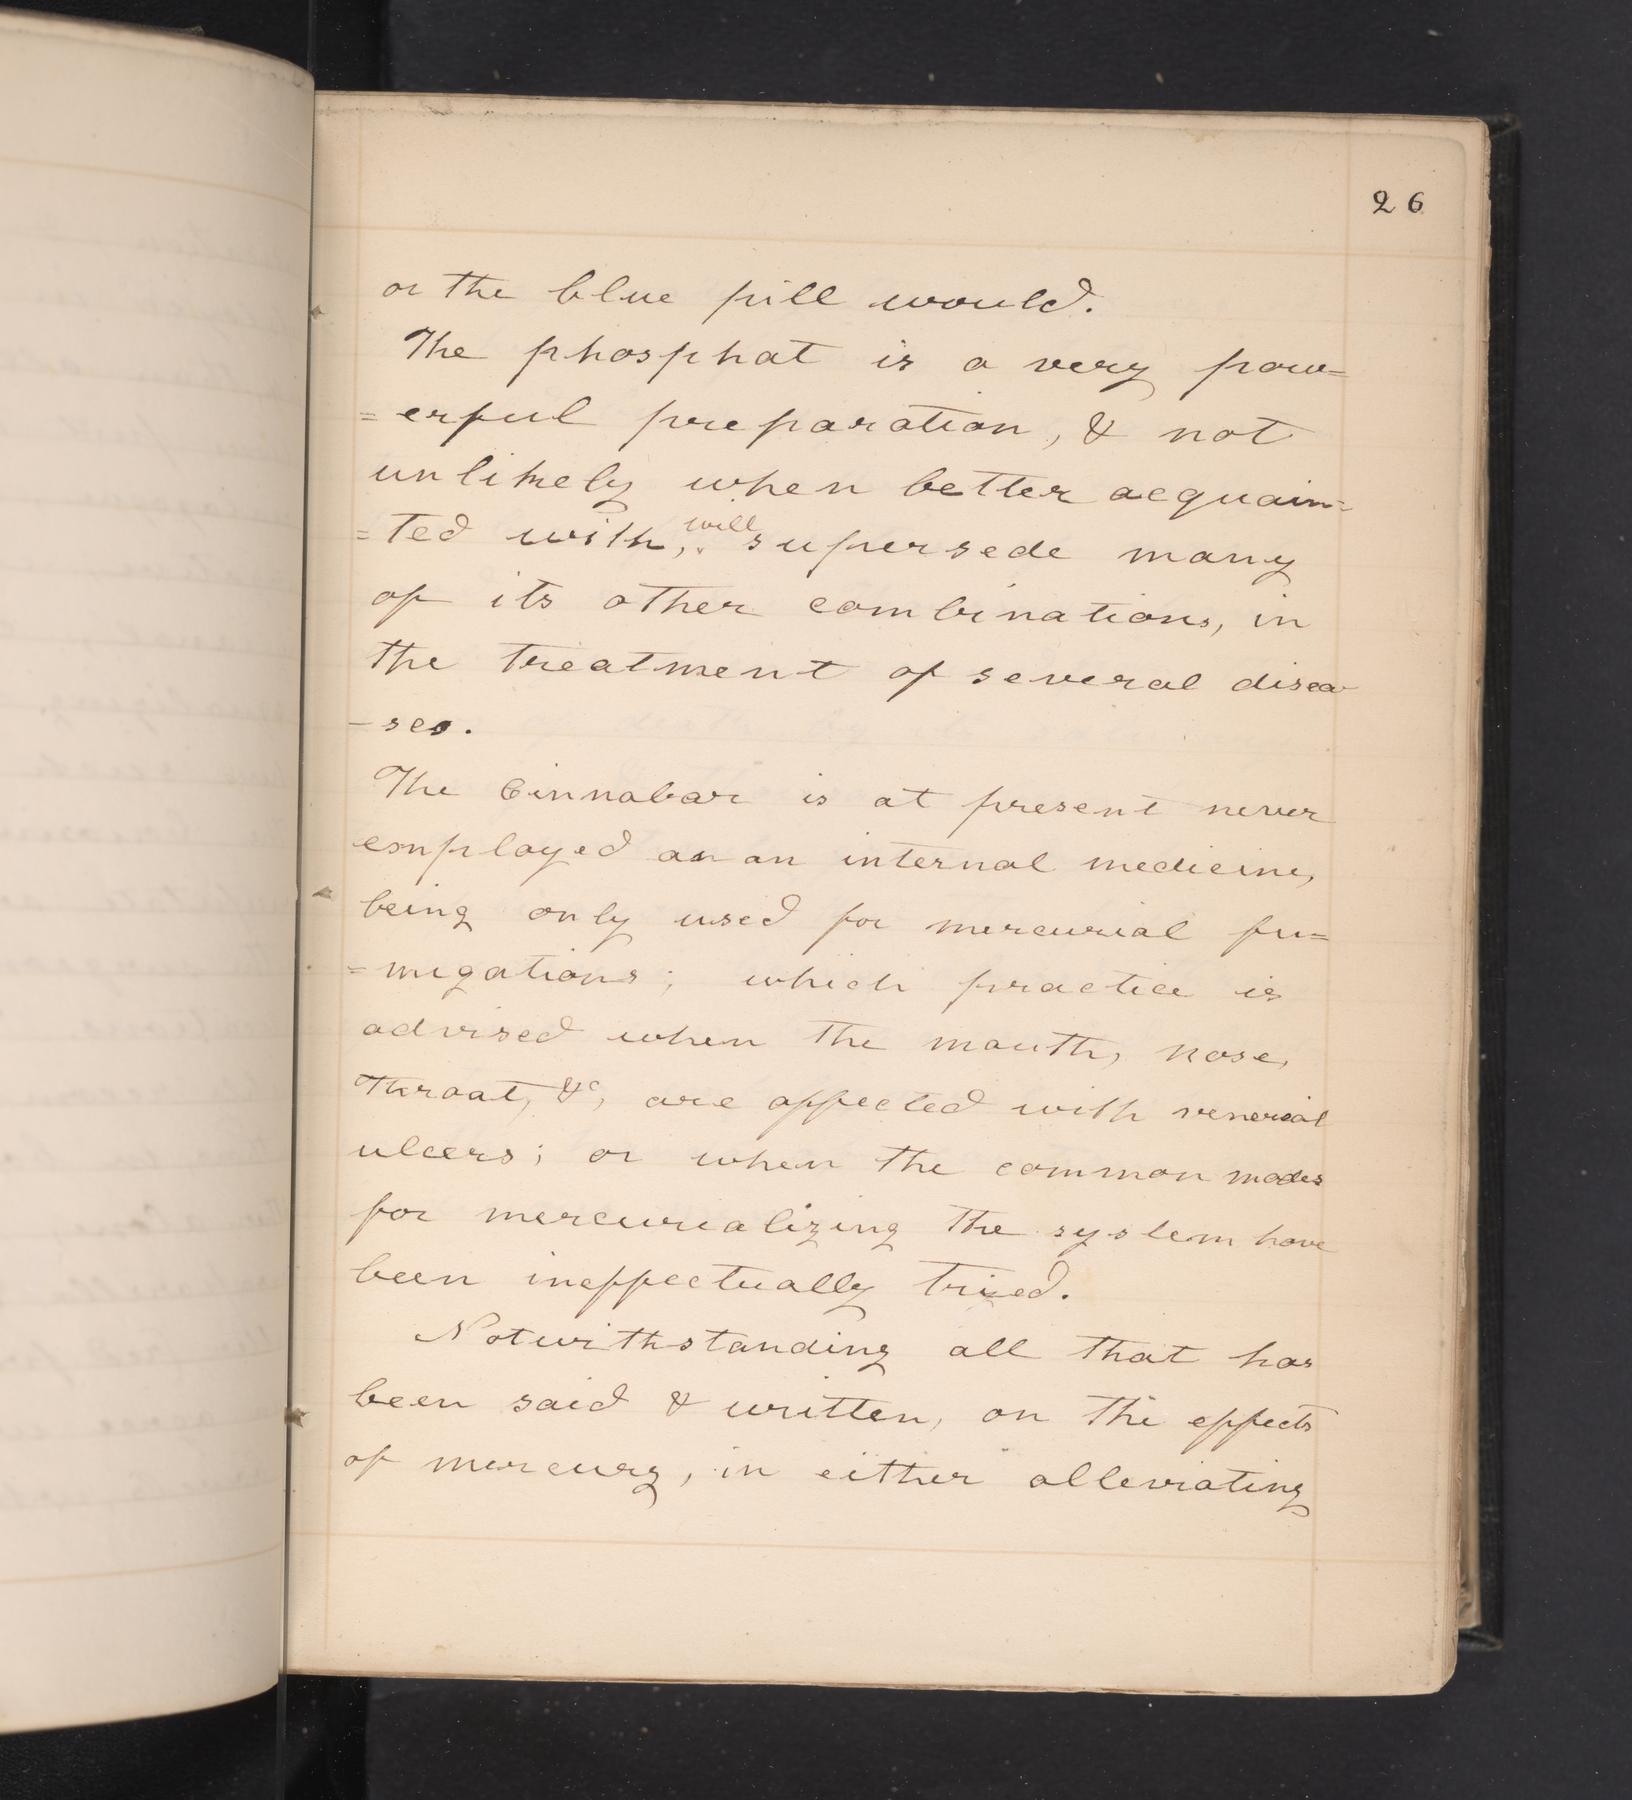 26
or the blue pill would.
The phosphat is a very pow=
=erful preparation, & not
unlikely when better acquain=
=ted with, will supersede many
of its other combinations, in
the treatment of several disea-
-ses.
The Cinnabar is at present never
employed as an internal medicine,
being only used for mercurial fu=
=migations; which practice is
advised when the mouth, nose,
throat, &c, are affected with venerial
ulcers; or when the common modes
for mercurializing the system have
been ineffectually tried.
Notwithstanding all that has
been said & written, on the effects
of mercury, in either alleviating